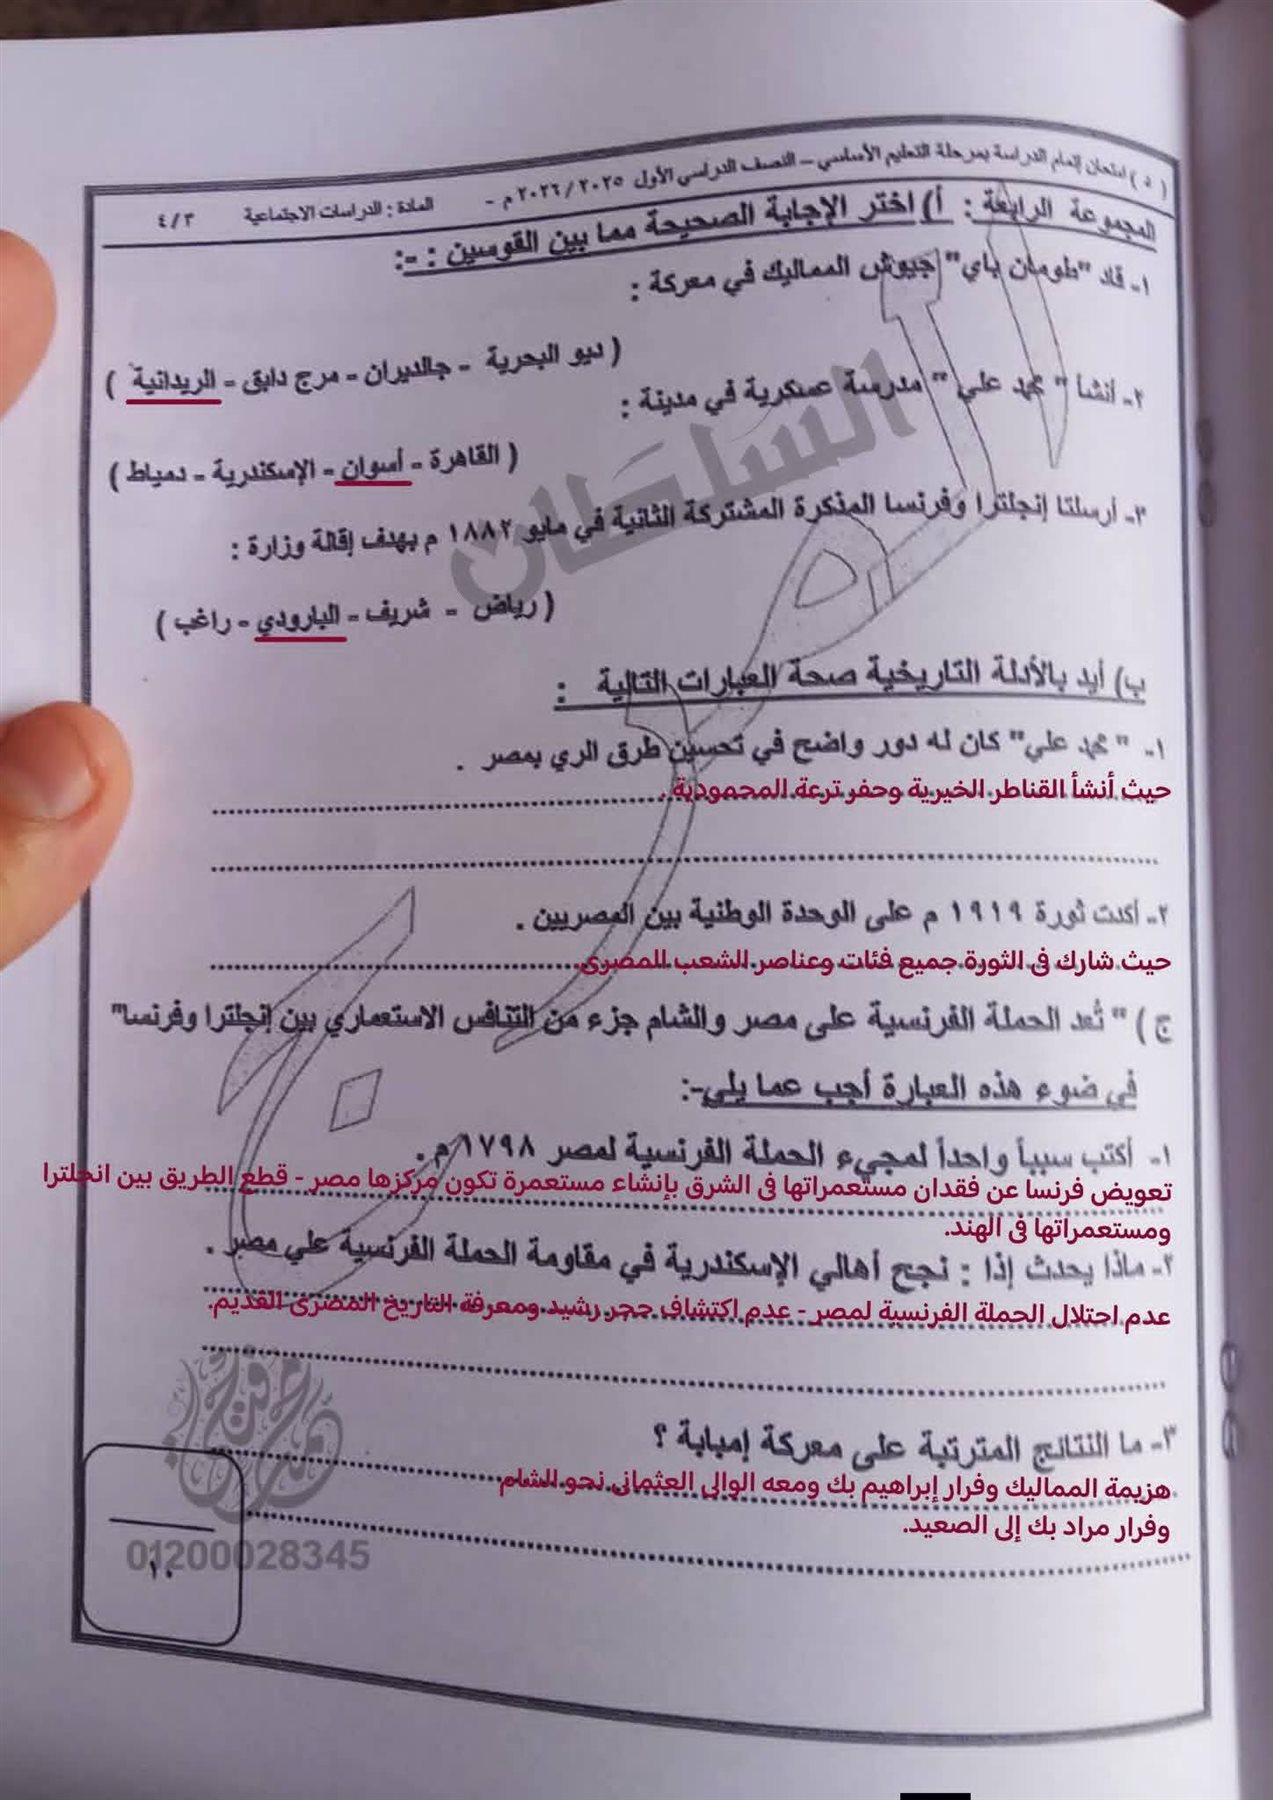 ( د ) امتحان إتمام الدراسة بمرحلة التعليم الأساسي – النصف الدراسي الأول ٢٠٢٥ / ٢٠٢٦ م - المادة : الدراسات الاجتماعية ٤/٣
المجموعة الرابعة : أ) اختر الإجابة الصحيحة مما بين القوسين : -:
١- قاد "طومان باي" جيوش المماليك في معركة :
( ديو البحرية - جالديران - مرج دابق - الريدانية )
٢- أنشأ " محمد علي " مدرسة عسكرية في مدينة :
( القاهرة - أسوان - الإسكندرية - دمياط )
٣- أرسلتا إنجلترا وفرنسا المذكرة المشتركة الثانية في مايو ١٨٨٢ م بهدف إقالة وزارة :
( رياض - شريف - البارودي - راغب )
السلطان
ب) أيد بالأدلة التاريخية صحة العبارات التالية :
١- " محمد علي" كان له دور واضح في تحسين طرق الري بمصر .
حيث أنشأ القناطر الخيرية وحفر ترعة المحمودية .
٢- أكدت ثورة ١٩١٩ م على الوحدة الوطنية بين المصريين .
حيث شارك فى الثورة جميع فئات وعناصر الشعب المصرى.
ج ) " تُعد الحملة الفرنسية على مصر والشام جزء من التنافس الاستعماري بين إنجلترا وفرنسا"
في ضوء هذه العبارة أجب عما يلي-:
١- أكتب سبباً واحداً لمجيء الحملة الفرنسية لمصر ١٧٩٨ م .
تعويض فرنسا عن فقدان مستعمراتها فى الشرق بإنشاء مستعمرة تكون مركزها مصر - قطع الطريق بين انجلترا
ومستعمراتها فى الهند.
٢- ماذا يحدث إذا : نجح أهالي الإسكندرية في مقاومة الحملة الفرنسية علي مصر .
عدم احتلال الحملة الفرنسية لمصر - عدم اكتشاف حجر رشيد ومعرفة التاريخ المصرى القديم.
٣- ما النتائج المترتبة على معركة إمبابة ؟
هزيمة المماليك وفرار إبراهيم بك ومعه الوالى العثمانى نحو الشام
وفرار مراد بك إلى الصعيد.
01200028345
١٠